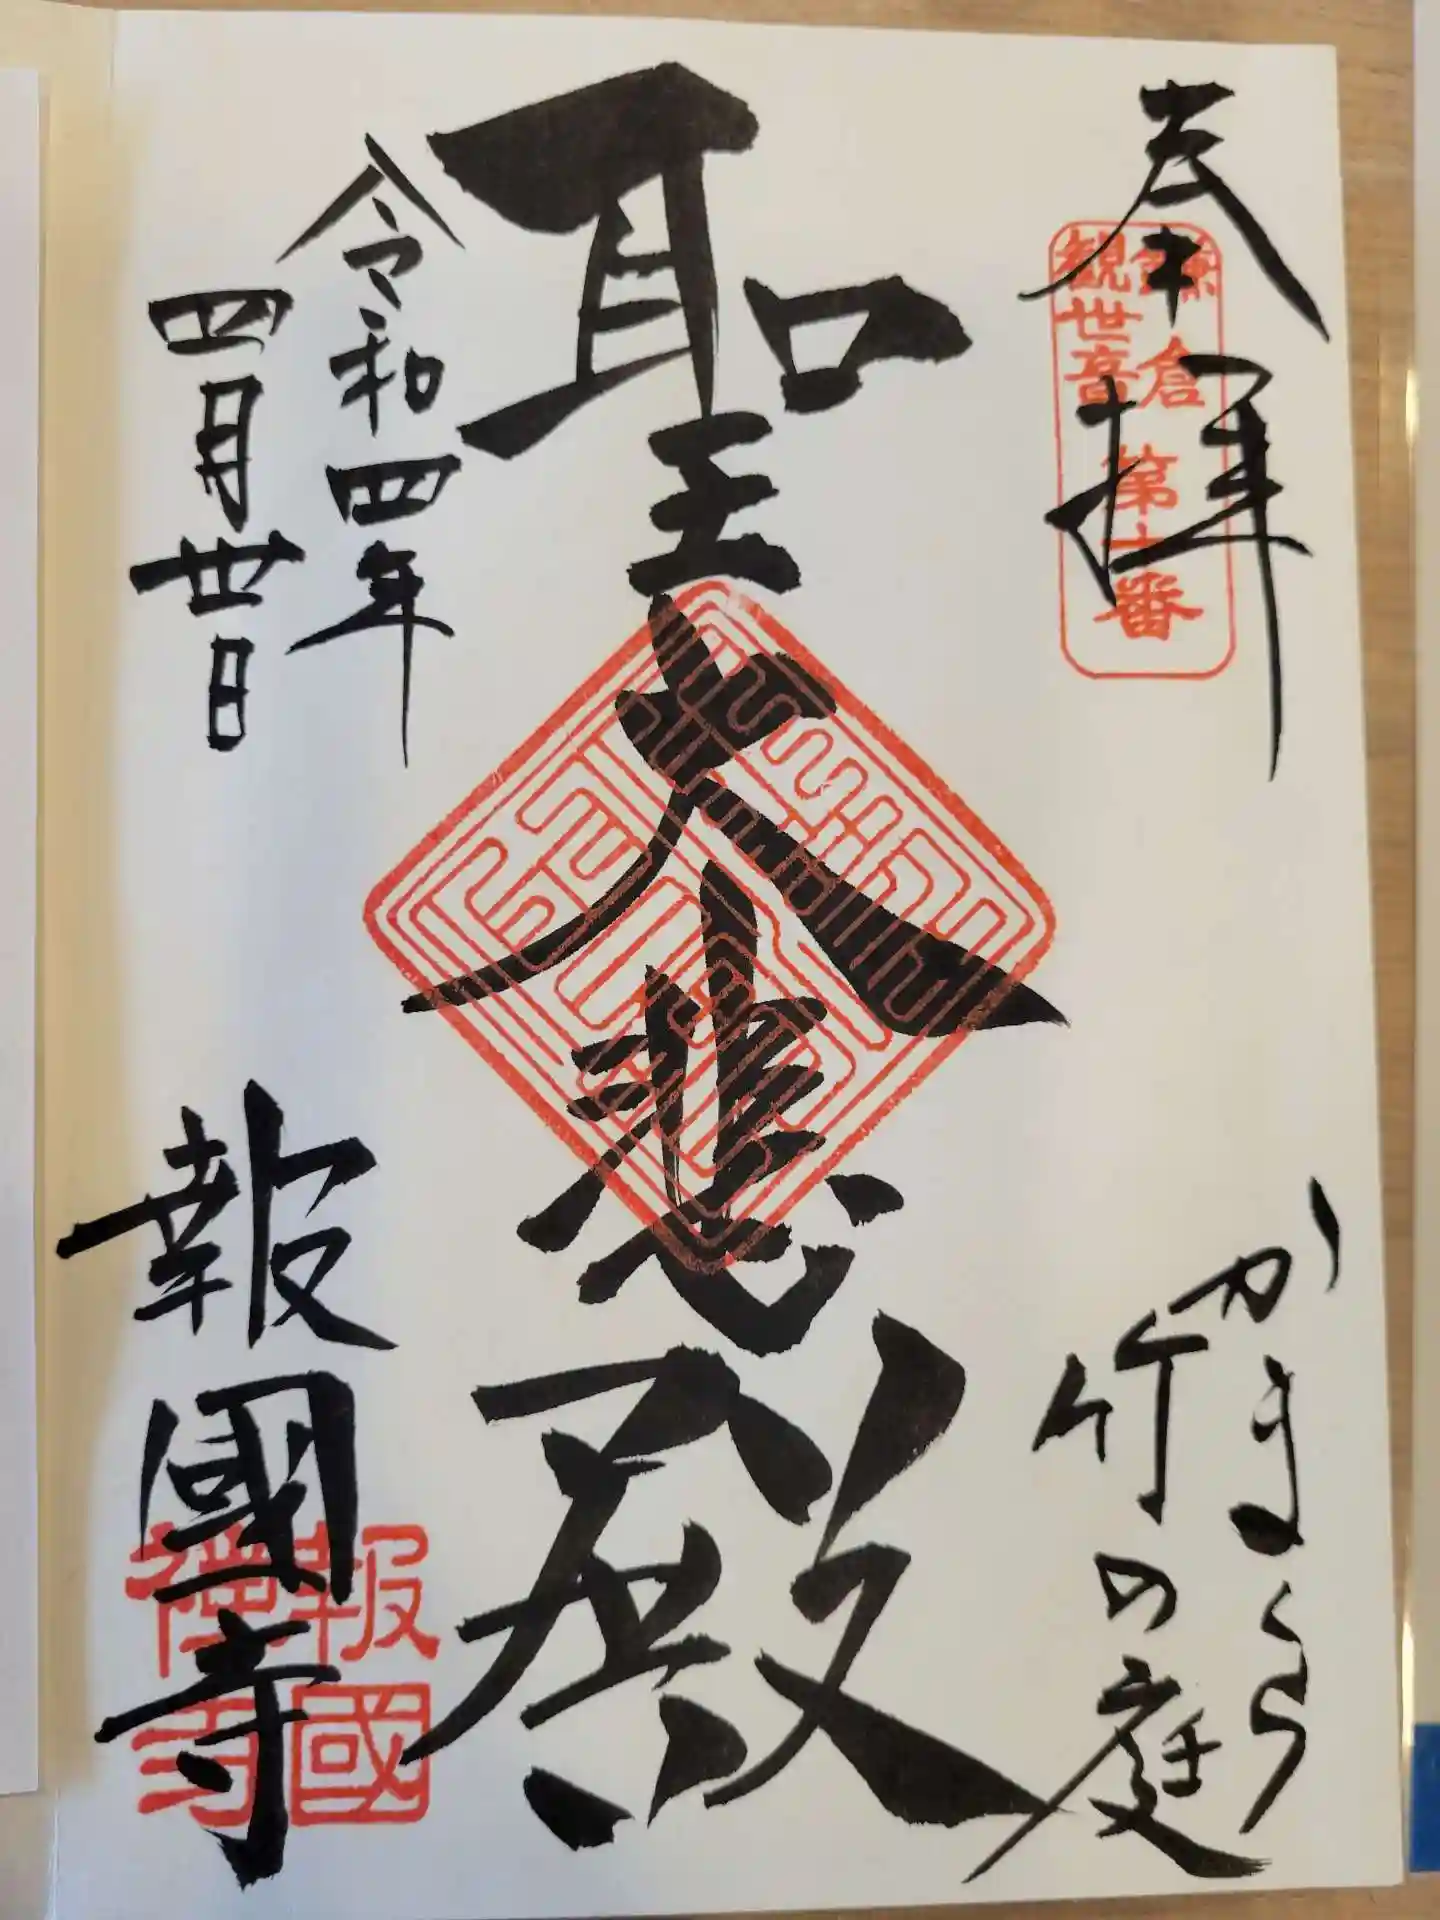 奉拝
鎌倉
観世音
第十番
かまくら
竹の庭
聖大悲殿
令和四年
四月廿日
報國寺
報國
禅寺